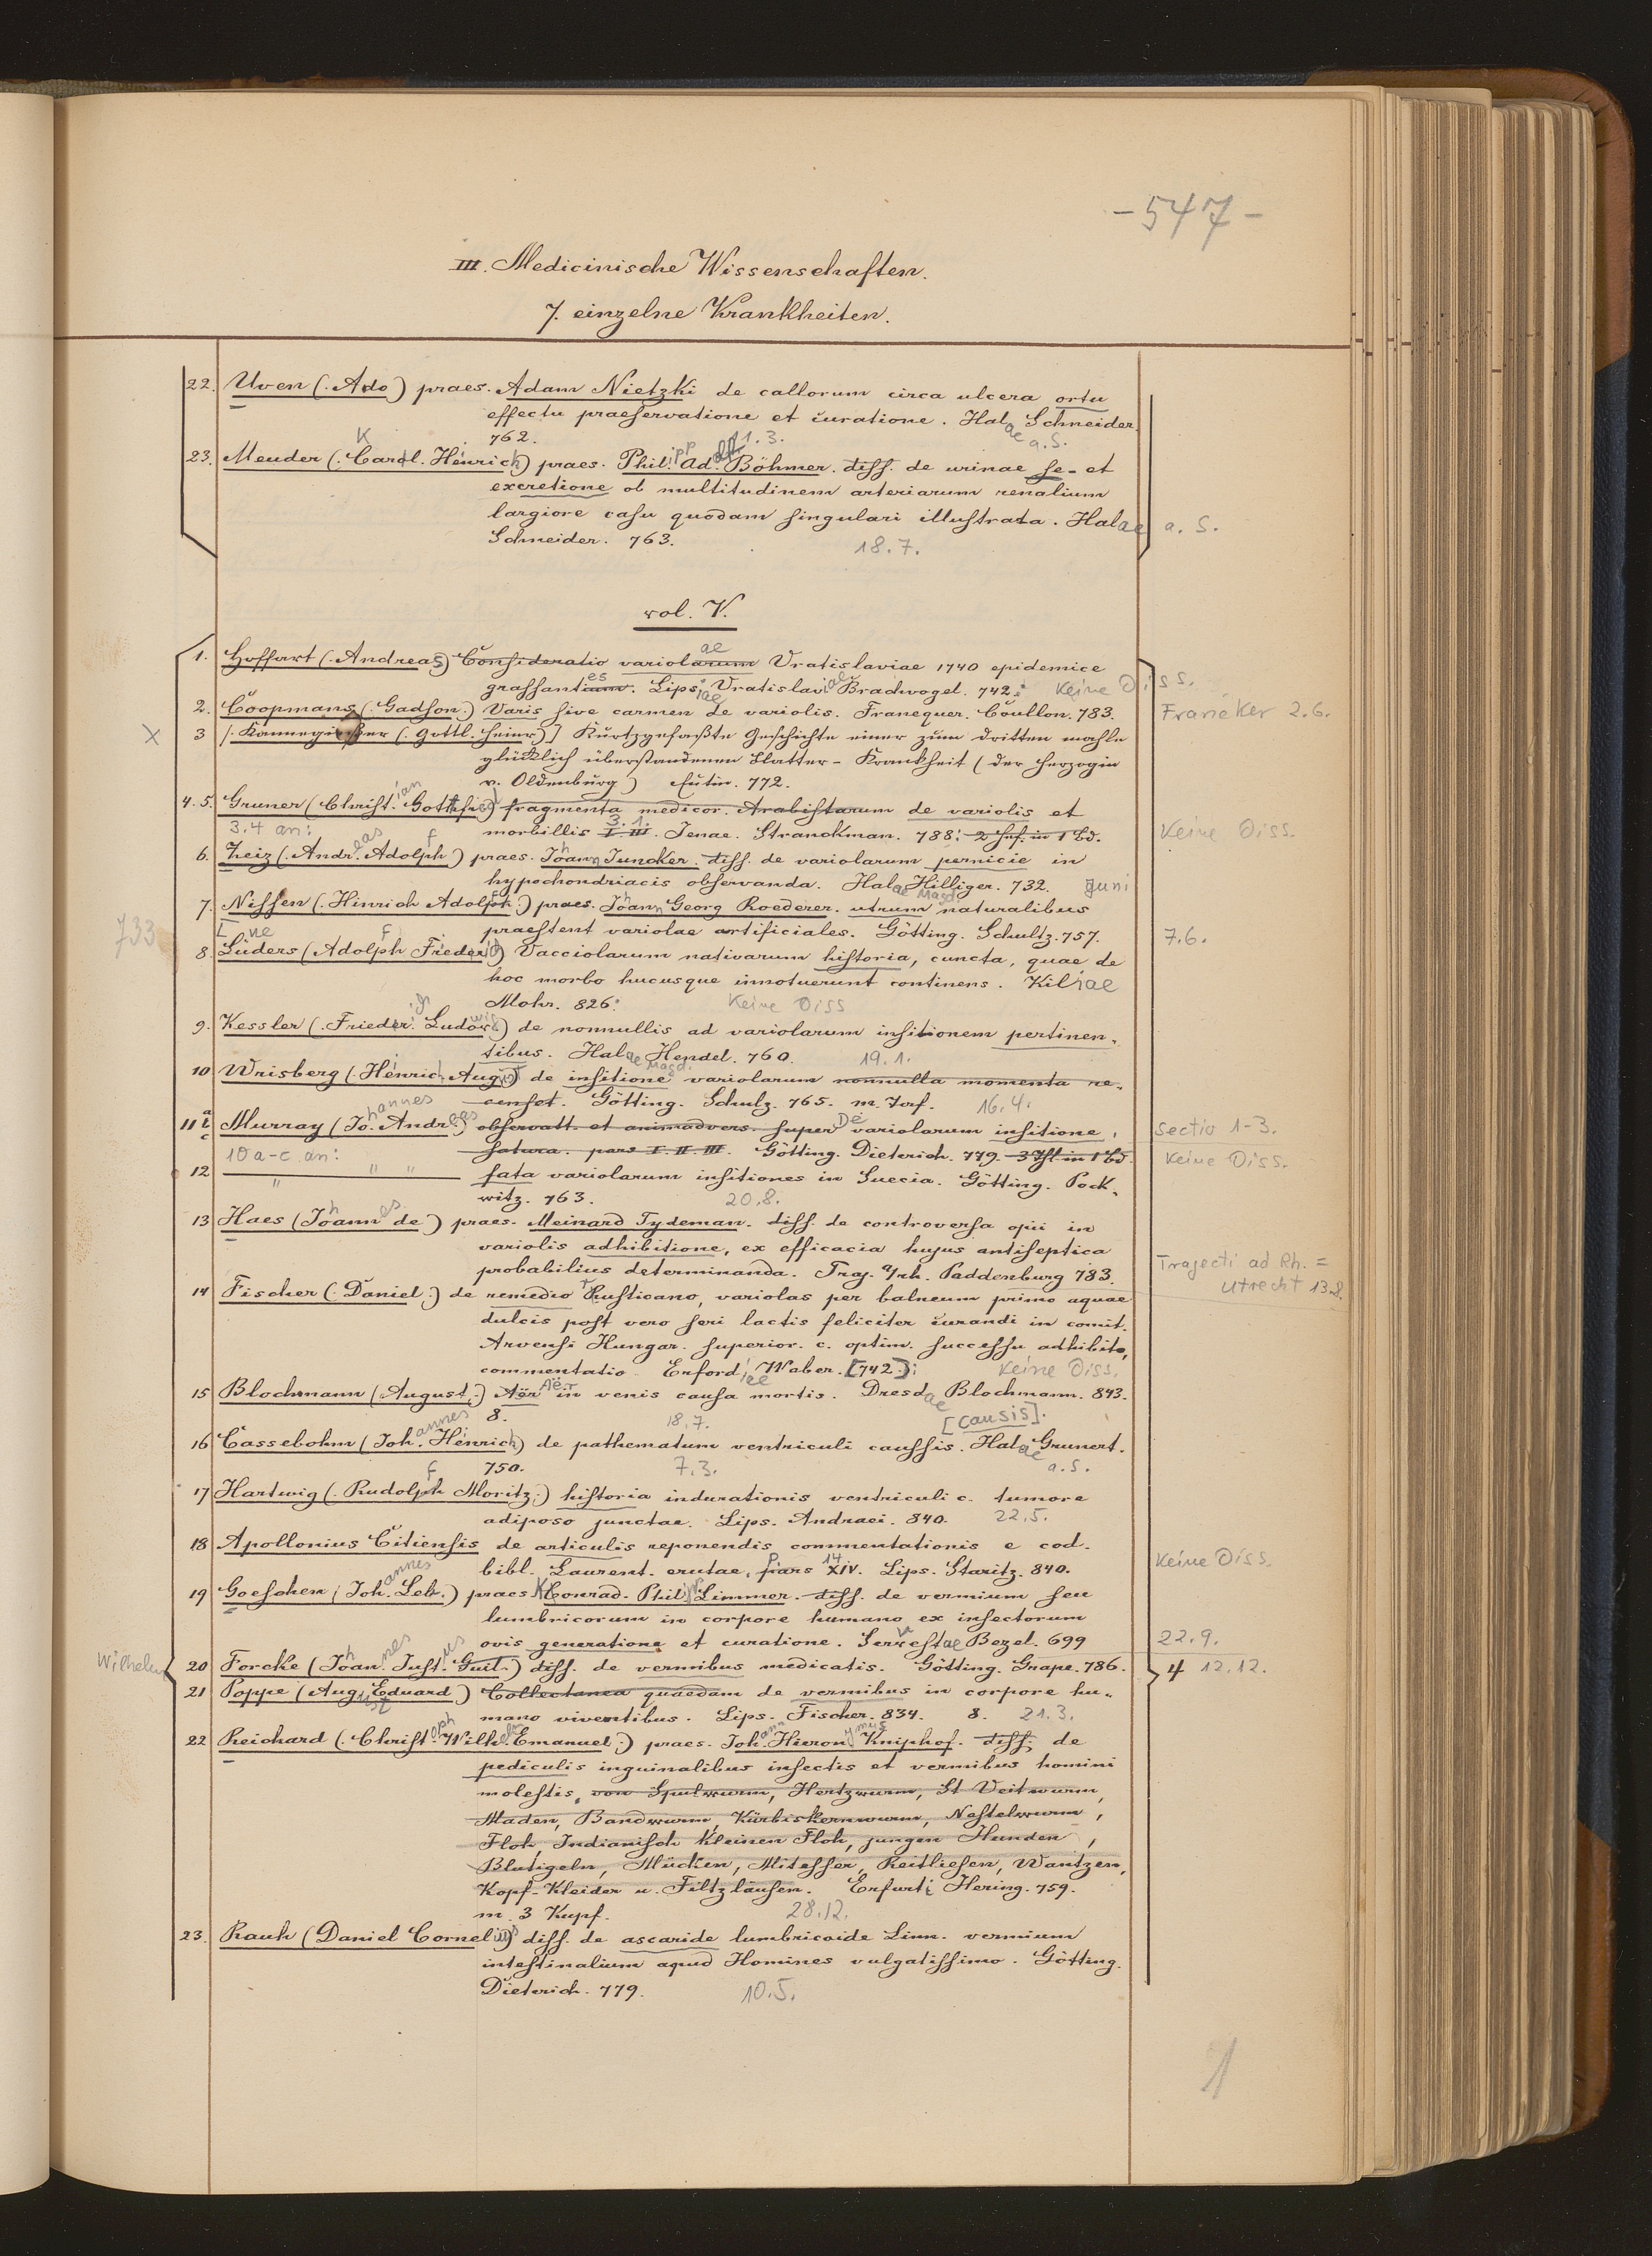 - 547 -
III. Medicinische Wissenschaften.
7. einzelne Krankheiten.
22. Uven (. Ado) praes. Adam Nietzki de callorum circa ulcera ortu
effectu praeservatione et curatione. Halae Schneider.
762. 11. 3. a. S.
23. Meuder (. Carl. Henrich) praes. Philipp Adolf Böhmer. diss. de urinae se- et
excretione ob multitudinem arteriarum renalium
largiore casu quodam singulari illustrata. Halae a. S.
Schneider. 763. 18. 7.
vol. V.
1. Hoffart (. Andreas) Consideratio variolarum ae Vratislaviae 1740 epidemice
grassantium es. Lipsiae Vratislaviae Bradvogel. 742. Keine Diss.
2. Coopmans (. Gadson.) Varis sive carmen de variolis. Franequer. Coullon. 783. Franeker 2. 6.
X 3 [. Kannegiesser (. Gottl. Heinr.)] Kurtzgefaßte Geschichte einer zum dritten mahle
glücklich überstandenen Blatter-Krankheit (der Herzogin
v. Oldenburg) Eutin. 772.
4. 5. Gruner (Christian Gottfried) fragmenta medicor. Arabistarum de variolis et
3. 4 an: morbillis I-III 3. 1. Jenae. Stranckman. 788. 2 Hef. in 1 Bd. Keine Diss.
6. Zeiz (. Andreas Adolph f) praes. Johann Juncker. diss. de variolarum pernicie in
hypochondriacis observanda. Halae Magd. Hilliger. 732. Juni
7. Nissen (. Hinrich Adolph f.) praes. Johann Georg Roederer. utrum naturalibus
733 praestent variolae artificiales. Götting. Schultz. 757. 7. 6.
8. Lüders (Adolph f Friederich) Vacciolarum nativarum historia, cuncta, quae de
hoc morbo hucusque innotuerunt continens. Kiliae
Mohr. 826. Keine Diss
9. Kessler (. Frieder. Ludowic) de nonnullis ad variolarum insitionem pertinen-
tibus. Halae Magd. Hendel. 760. 19. 1.
10 Wrisberg (. Henric. August) de insitione variolarum nonnulla momenta re-
censet. Götting. Schulz. 765. 16. 4.
11 a c Murray (Johannes Andreas) observatt. et animadvers. super De variolarum insitione, Sectio 1-3.
10 a-c an: pars I. II. III. Götting. Dieterich. 779. 3 Thl in 1 Bd. Keine Diss.
12 " " " fata variolarum insitiones in Suecia. Götting. Pock-
witz. 763. 20. 8.
13 Haes (Johannes de) praes. Meinard Tydeman. diss. de controversa opii in
variolis adhibitione, ex efficacia hujus antiseptica
probabilius determinanda. Traj. Paddenburg 783. Trajecti ad Rh. =
Utrecht 13. 8.
14 Fischer (. Daniel.) de remedio rusticano, variolas per balneum primo aquae
dulcis post vero seri lactis feliciter curandi in comit.
Arvensi Hungar. superior. c. optim. successu adhibito,
commentatio. Erfordiae Waber. [742.] Keine Diss.
15 Blochmann (August.) Aër Aër in venis causa mortis. Dresdae Blochmann. 843.
8. 18. 7. [causis].
16 Cassebohm (Johannes Henrich) de pathematum ventriculi caussis. Halae Grunert.
750. 7. 3. a. S.
17 Hartwig (. Rudolph f Moritz.) historia indurationis ventriculi c. tumore
adiposo junctae. Lips. Andraei. 840. 22. 5.
18 Apollonius Citiensis de articulis reponendis commentationis e cod.
bibl. Laurent. erutae, pars XIV 14. Lips. Staritz. 840. Keine Diss.
19 Goeschen (Johannes Leb.) praes. Conrad K Philipp Limmer. diss. de vermium seu
lumbricorum in corpore humano ex insectorum
ovis generatione et curatione. Servestae Bezel. 699 22. 9.
Wilhelm 20 Forcke (Johannes Justus Guil.) diss. de vermibus medicatis. Götting. Grape. 786. 4 12. 12.
21 Poppe (August Eduard.) Collectanea quaedam de vermibus in corpore hu-
mano viventibus. Lips. Fischer. 834. 8. 21. 3.
22 Reichard (. Christoph Wilhelm Emanuel.) praes. Johann Hieronymus Kniphof. diss. de
pediculis inguinalibus insectis et vermibus homini
molestis, von Spulwurm, Hertzwurm, St Veitwurm,
Maden, Bandwurm, Kürbiskernwurm, Nestelwurm,
Floh, Indianisch kleinen Floh, jungen Hunden,
Blutigeln, Mücken, Mitesser, Reitliesen, Wantzen,
Kopf- Kleider u. Filtzläusen. Erfurti Hering. 759.
m. 3 Kupf. 28. 12.
23. Rauh (Daniel Cornelius) diss. de ascaride lumbricoide Linn. vermium
intestinalium apud Homines vulgatissimo. Götting.
Dieterich. 779. 10. 5.